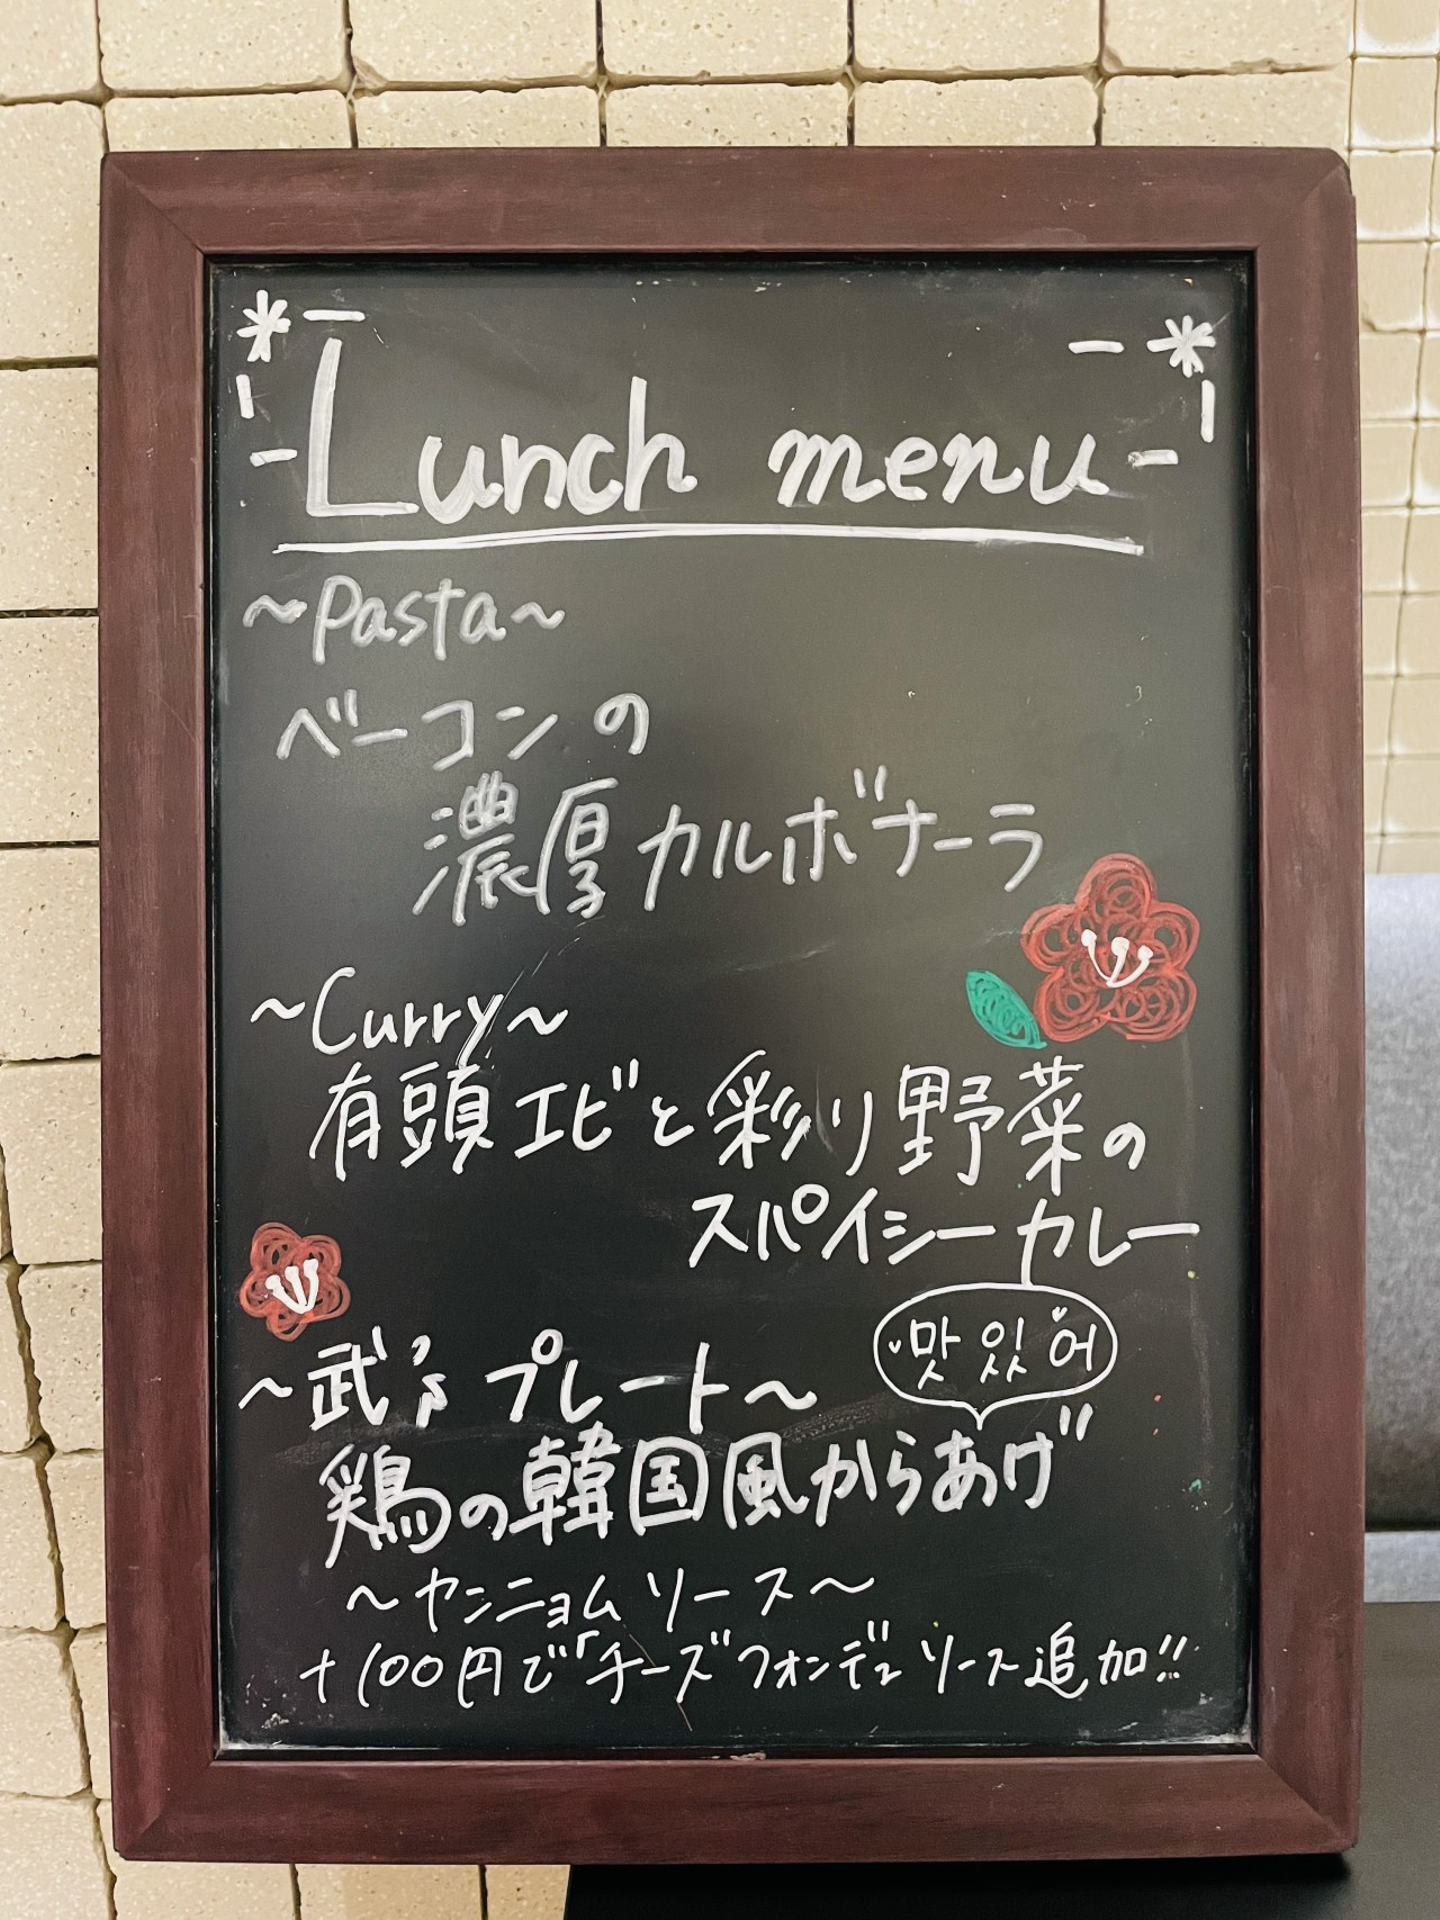 Lunch menu
~Pasta~
ベーコンの
濃厚カルボナーラ
~Curry~
有頭エビと彩り野菜の
スパイシーカレー
맛있어
~武'sプレート~
鶏の韓国風からあげ
~ヤンニョムソース~
+100円で「チーズフォンデュソース追加!!